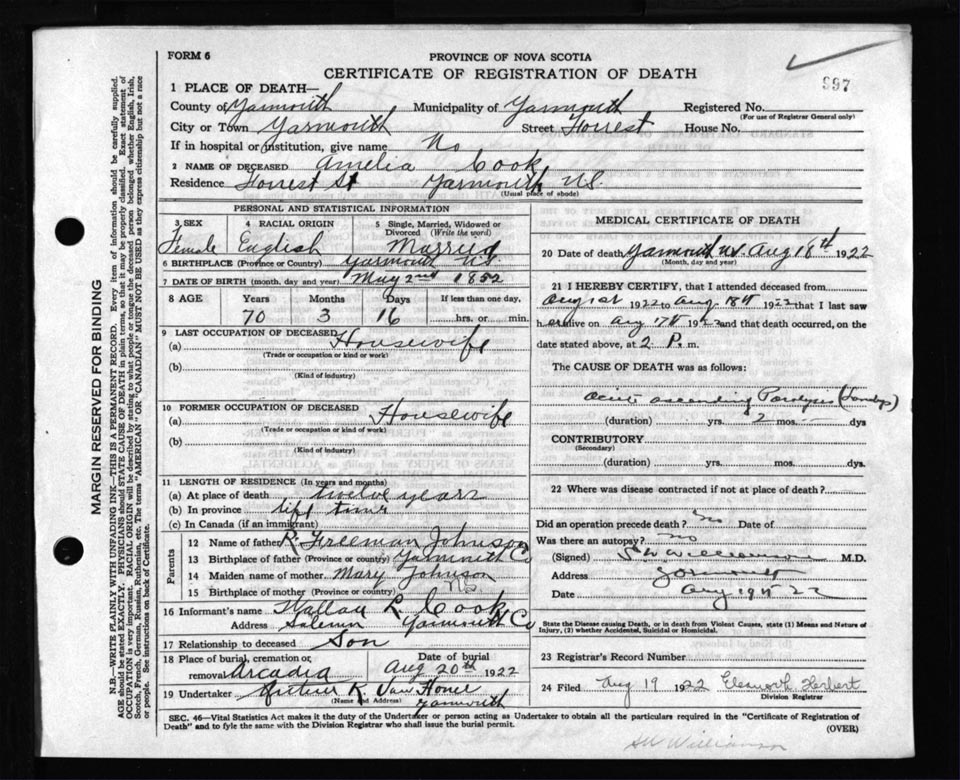 FORM 6
PROVINCE OF NOVA SCOTIA
CERTIFICATE OF REGISTRATION OF DEATH
997
1 PLACE OF DEATH—
County of Yarmouth Municipality of Yarmouth Registered No.
(For use of Registrar General only)
City or Town Yarmouth Street Forrest House No.
If in hospital or institution, give name No
2 NAME OF DECEASED Amelia Cook
Residence Forrest St Yarmouth N.S.
(Usual place of abode)
PERSONAL AND STATISTICAL INFORMATION
3 SEX Female
4 RACIAL ORIGIN English
5 Single, Married, Widowed or Divorced (Write the word) Married
6 BIRTHPLACE (Province or Country) Yarmouth N.S.
7 DATE OF BIRTH (month, day and year) May 2nd 1852
8 AGE Years Months Days If less than one day,
70 3 16 hrs. or min.
9 LAST OCCUPATION OF DECEASED
(a) Housewife
(Trade or occupation or kind or work)
(b)
(Kind of industry)
10 FORMER OCCUPATION OF DECEASED
(a) Housewife
(Trade or occupation or kind of work)
(b)
(Kind of industry)
11 LENGTH OF RESIDENCE (In years and months)
(a) At place of death twelve years
(b) In province life time
(c) In Canada (if an immigrant)
Parents
12 Name of father R. Freeman Johnson
13 Birthplace of father (Province or country) Yarmouth Co
14 Maiden name of mother Mary Johnson
15 Birthplace of mother (Province or country) N.S.
16 Informant's name R. Cook
Address Salem Yarmouth Co
17 Relationship to deceased Son
18 Place of burial, cremation or removal Arcadia
Date of burial Aug 20th 1922
19 Undertaker Arthur K. Van Horne
(Name and Address) Yarmouth
MEDICAL CERTIFICATE OF DEATH
20 Date of death Yarmouth N.S. Aug 18th 1922
(Month, day and year)
21 I HEREBY CERTIFY, that I attended deceased from
Aug 1st 1922 to Aug 18th 1922 that I last saw
h alive on Aug 17th 1922 and that death occurred, on the
date stated above, at 2 P. m.
The CAUSE OF DEATH was as follows:
Acute ascending Paralysis (Landrys)
(duration) yrs. 2 mos. dys
CONTRIBUTORY
(Secondary)
(duration) yrs. mos. dys.
22 Where was disease contracted if not at place of death?
Did an operation precede death? No Date of
Was there an autopsy? No
(Signed) S W Williamson M.D.
Address Yarmouth
Date Aug 19th 22
State the Disease causing Death, or in death from Violent Causes, state (1) Means and Nature of
Injury, (2) whether Accidental, Suicidal or Homicidal.
23 Registrar's Record Number
24 Filed Aug 19 1922 Herbert
Division Registrar
SEC. 46—Vital Statistics Act makes it the duty of the Undertaker or person acting as Undertaker to obtain all the particulars required in the "Certificate of Registration of
Death" and to fyle the same with the Division Registrar who shall issue the burial permit.
(OVER)
Williamson
MARGIN RESERVED FOR BINDING
N.B.—WRITE PLAINLY WITH UNFADING INK—THIS IS A PERMANENT RECORD. Every item of information should be carefully supplied.
AGE should be stated EXACTLY. PHYSICIANS should STATE CAUSE OF DEATH in plain terms, so that it may be properly classified. Exact statement of
OCCUPATION is very important. RACIAL ORIGIN will be described by stating to what people or tongue the deceased person belonged whether English, Irish,
Scotch, French, German, Russian, Ruthenian, etc. The terms "AMERICAN" or "CANADIAN" MUST NOT BE USED as they express citizenship but not a race
or people. See instructions on back of Certificate.